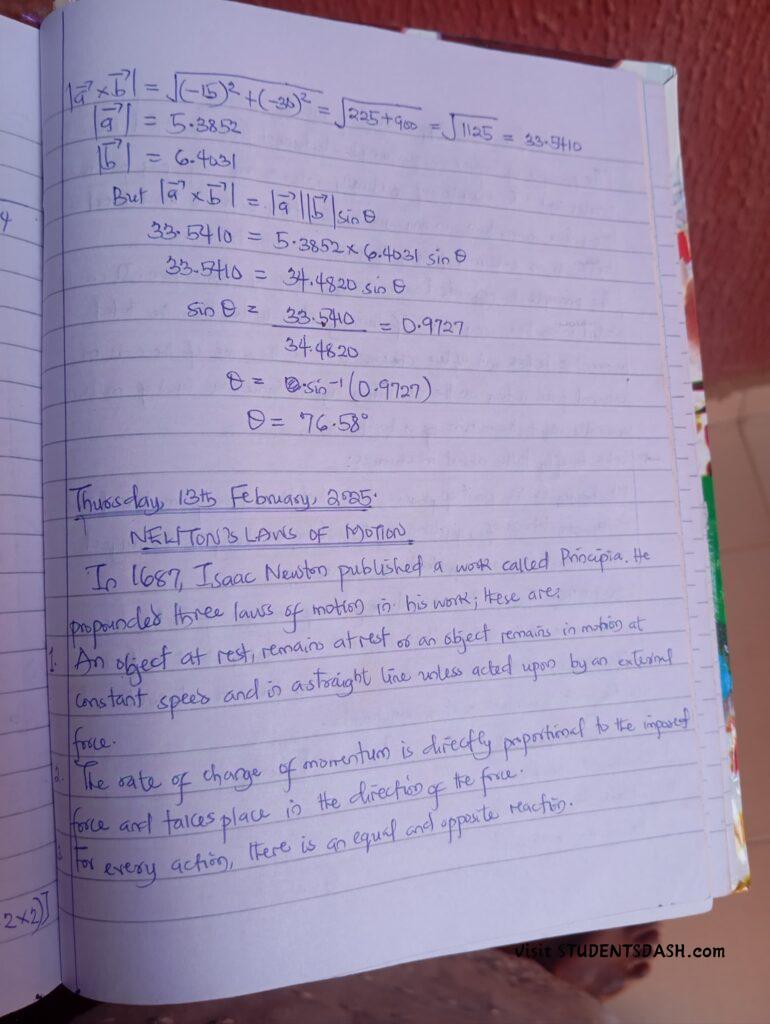 |a⃗ × b⃗| = √((-15)² + (-30)²) = √(225+900) = √1125 = 33.5410
|a⃗| = 5.3852
|b⃗| = 6.4031
But |a⃗ × b⃗| = |a⃗||b⃗| sin θ
33.5410 = 5.3852 × 6.4031 sin θ
33.5410 = 34.4820 sin θ
sin θ = 33.5410 / 34.4820 = 0.9727
θ = sin⁻¹(0.9727)
θ = 76.58°
Thursday, 13th February, 2025.
NEWTON'S LAWS OF MOTION
In 1687, Isaac Newton published a work called Principia. He
propounded three laws of motion in his work; these are:
1. An object at rest, remains at rest or an object remains in motion at
constant speed and in a straight line unless acted upon by an external
force.
2. The rate of change of momentum is directly proportional to the
force and takes place in the direction of the force.
3. For every action, there is an equal and opposite reaction.
4
2×2)]
Visit STUDENTSDASH.com